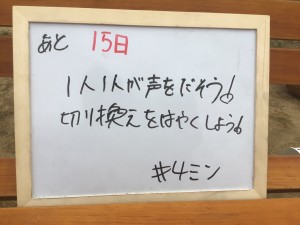 あと 15日
1人1人が声をだそう♪
切り換えをはやくしよう♪
#4ミン